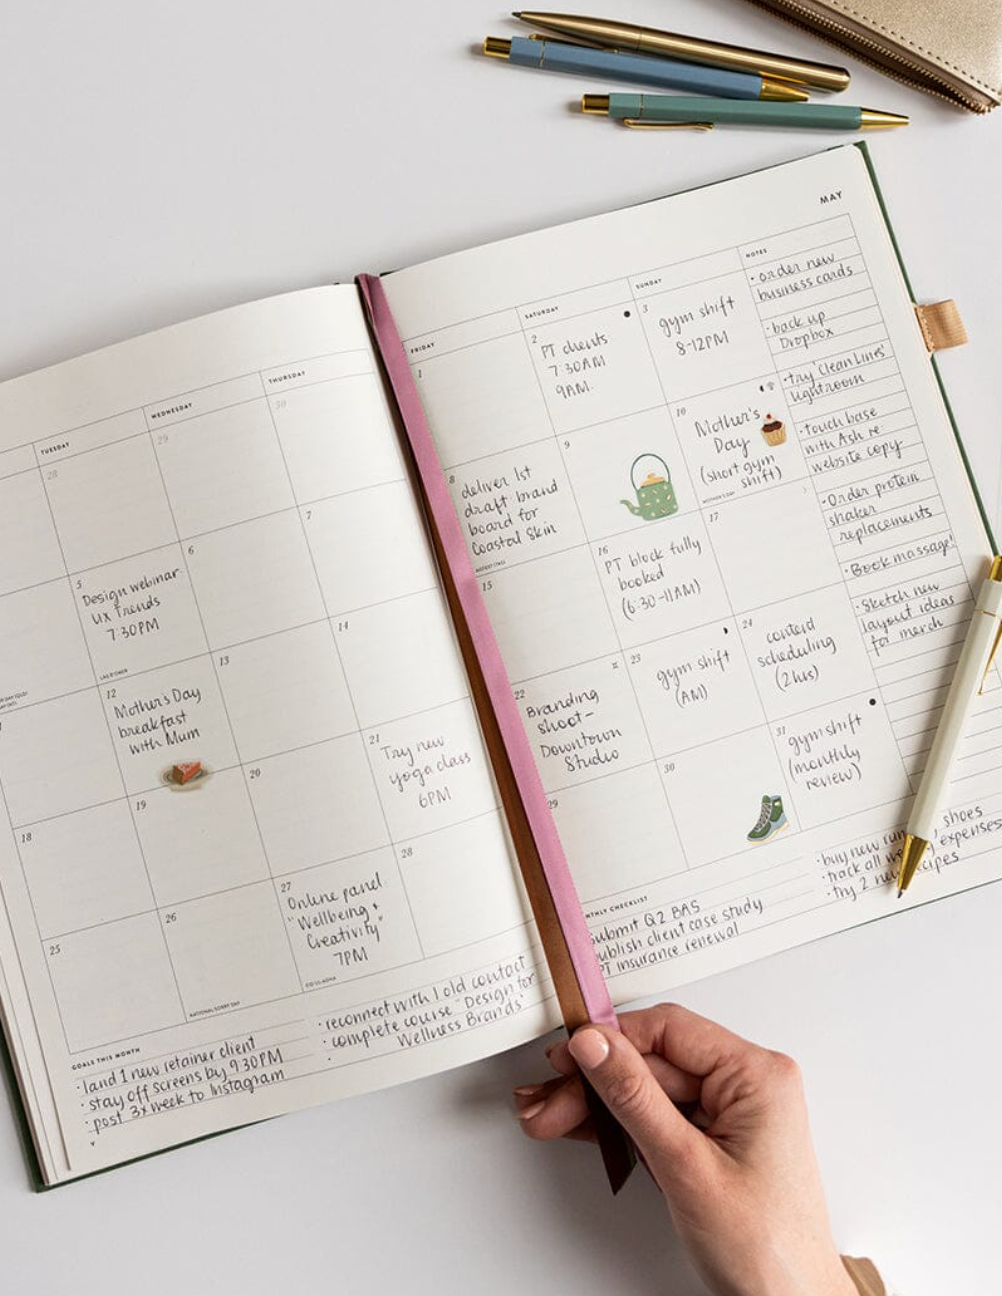 MAY
TUESDAY
WEDNESDAY
THURSDAY
28
29
30
5
Design webinar
UX Trends
7:30PM
6
7
12
Mother's Day
breakfast
with Mum
13
14
18
19
20
21
Try new
yoga class
6PM
25
26
NATIONAL SORRY DAY
27
Online panel
"Wellbeing +
Creativity"
7PM
28
GOALS THIS MONTH
· land 1 new retainer client
· stay off screens by 9:30PM
· post 3x week to Instagram
· reconnect with 1 old contact
· complete course "Design for
Wellness Brands"
FRIDAY
SATURDAY
SUNDAY
NOTES
1
2
PT clients
7:30AM
9AM
3
gym shift
8-12PM
8
deliver 1st
draft brand
board for
Coastal Skin
9
10
Mother's
Day
(short gym
shift)
MOTHER'S DAY
15
16
PT block fully
booked
(6:30-11AM)
17
22
Branding
shoot-
Downtown
Studio
23
gym shift
(AM)
24
content
scheduling
(2hrs)
29
30
31
gym shift
(monthly
review)
· order new
business cards
· back up
Dropbox
· try 'Clean Lines'
Lightroom
· touch base
with Ash re:
website copy
· Order protein
shaker
replacements
· Book massage!
· Sketch new
layout ideas
for merch
NTHLY CHECKLIST
submit Q2 BAS
ublish client case study
PT insurance renewal
· buy new run shoes
· track all expenses
· try 2 new recipes